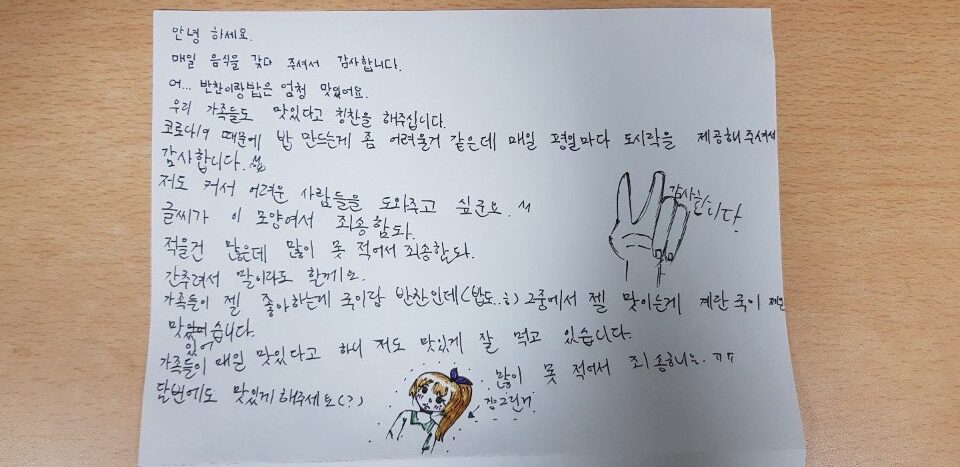 안녕 하세요.
매일 음식을 갖다 주셔서 감사합니다.
어... 반찬이랑밥은 엄청 맛있어요.
우리 가족들도 맛있다고 칭찬을 해주십니다.
코로나19 때문에 밥 만드는게 좀 어려울거 같은데 매일 평일마다 도시락을 제공해주셔서
감사합니다.
저도 커서 어려운 사람들을 도와주고 싶군요.
글씨가 이 모양여서 죄송함다.
적을건 많은데 많이 못 적어서 죄송한다.
간추려서 말이라도 할께요.
가족들이 젤 좋아하는게 국이랑 반찬인데(밥도..ㅎ) 그중에서 젤 맛이는게 계란국이 제일
맛있어습니다.
가족들이 매일 맛있다고 하니 저도 맛있게 잘 먹고 있습니다.
담번에도 맛있게해주세요(?)
감사합니다.
많이 못 적어서 죄송하니는. ㄲㅠ
걍그린거